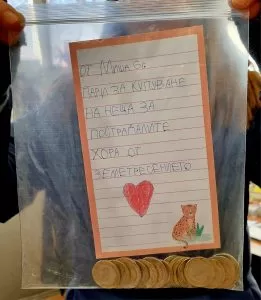 ОТ МИША 6г.
ПАРИ ЗА КУПУВАНЕ
НА НЕЩА ЗА
ПОСТРАДАЛИТЕ
ХОРА ОТ
ЗЕМЕТРЕСЕНИЕТО